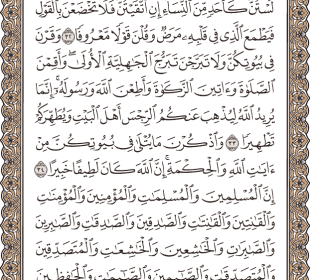 لَسْتُنَّ كَأَحَدٍ مِّنَ ٱلنِّسَآءِ إِنِ ٱتَّقَيْتُنَّ فَلَا تَخْضَعْنَ بِٱلْقَوْلِ
فَيَطْمَعَ ٱلَّذِى فِى قَلْبِهِۦ مَرَضٌ وَقُلْنَ قَوْلًا مَّعْرُوفًا ٣٢ وَقَرْنَ
فِى بُيُوتِكُنَّ وَلَا تَبَرَّجْنَ تَبَرُّجَ ٱلْجَـٰهِلِيَّةِ ٱلْأُولَىٰ وَأَقِمْنَ
ٱلصَّلَوٰةَ وَءَاتِينَ ٱلزَّكَوٰةَ وَأَطِعْنَ ٱللَّهَ وَرَسُولَهُۥٓ إِنَّمَا
يُرِيدُ ٱللَّهُ لِيُذْهِبَ عَنكُمُ ٱلرِّجْسَ أَهْلَ ٱلْبَيْتِ وَيُطَهِّرَكُمْ
تَطْهِيرًا ٣٣ وَٱذْكُرْنَ مَا يُتْلَىٰ فِى بُيُوتِكُنَّ مِنْ
ءَايَـٰتِ ٱللَّهِ وَٱلْحِكْمَةِ إِنَّ ٱللَّهَ كَانَ لَطِيفًا خَبِيرًا ٣٤
إِنَّ ٱلْمُسْلِمِينَ وَٱلْمُسْلِمَـٰتِ وَٱلْمُؤْمِنِينَ وَٱلْمُؤْمِنَـٰتِ
وَٱلْقَـٰنِتِينَ وَٱلْقَـٰنِتَـٰتِ وَٱلصَّـٰدِقِينَ وَٱلصَّـٰدِقَـٰتِ وَٱلصَّـٰبِرِينَ
وَٱلصَّـٰبِرَٰتِ وَٱلْخَـٰشِعِينَ وَٱلْخَـٰشِعَـٰتِ وَٱلْمُتَصَدِّقِينَ
وَٱلْمُتَصَدِّقَـٰتِ وَٱلصَّـٰٓئِمِينَ وَٱلصَّـٰٓئِمَـٰتِ وَٱلْحَـٰفِظِينَ